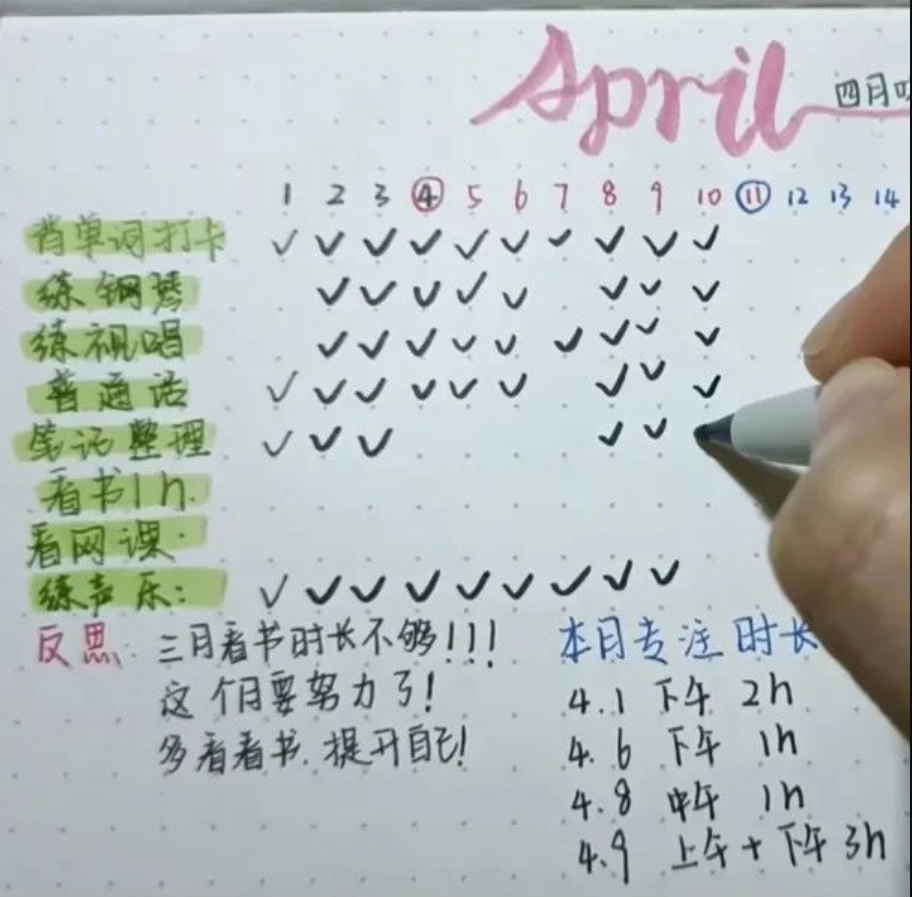 April
四月
1 2 3 4 5 6 7 8 9 10 11 12 13 14
背单词打卡 ✓ ✓ ✓ ✓ ✓ ✓ ✓ ✓ ✓ ✓
练钢琴 ✓ ✓ ✓ ✓ ✓ ✓ ✓ ✓
练视唱 ✓ ✓ ✓ ✓ ✓ ✓ ✓ ✓ ✓
普通话 ✓ ✓ ✓ ✓ ✓ ✓ ✓ ✓ ✓
笔记整理 ✓ ✓ ✓ ✓ ✓
看书1h.
看网课.
练声乐: ✓ ✓ ✓ ✓ ✓ ✓ ✓ ✓ ✓
反思: 三月看书时长不够!!!
这个月要努力了!
多看看书.提升自己!
本月专注时长
4.1 下午 2h
4.6 下午 1h
4.8 中午 1h
4.9 上午+下午 3h